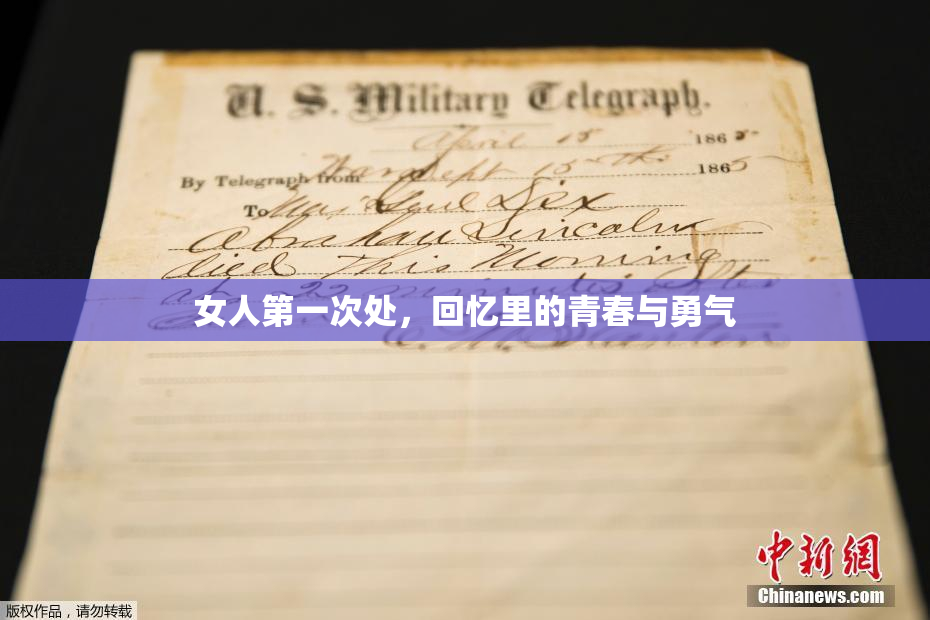 U. S. Military Telegraph.
April 15 1865
By Telegraph from War Dept 15th 1865
To Maj Genl Dix
Abraham Lincoln
died This Morning
at 22 minutes after
女人第一次处，回忆里的青春与勇气
E. M. Stanton
中新网
Chinanews.com
版权作品，请勿转载